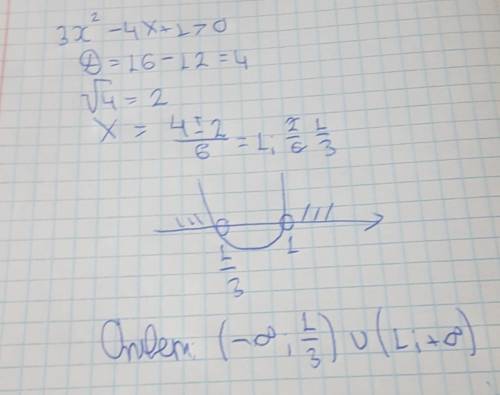 3x² - 4x + 1 > 0
D = 16 - 12 = 4
√4 = 2
x = (4 ± 2)/6 = 1; 2/6 1/3
1/3 1
Ответ: (-∞; 1/3) ∪ (1; +∞)